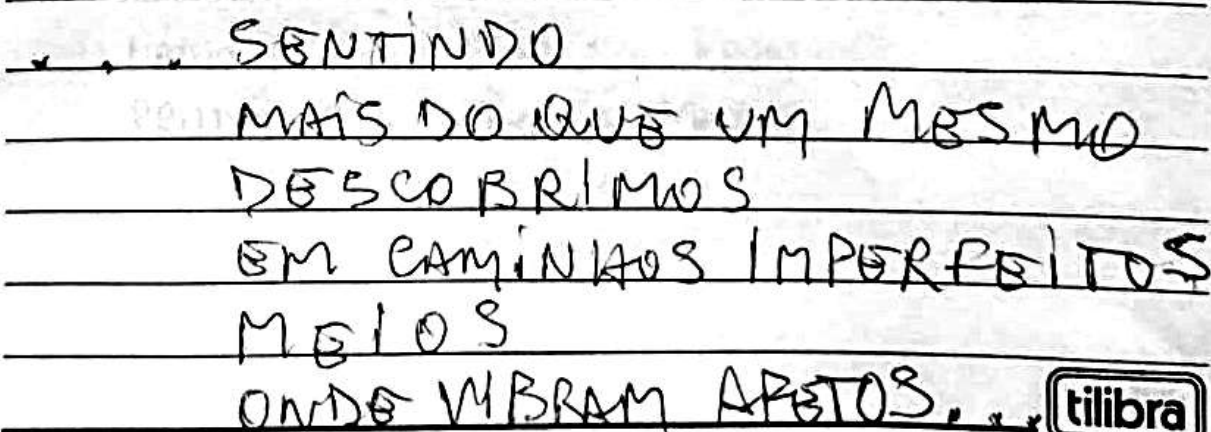 ... SENTINDO
MAIS DO QUE UM MESMO
DESCOBRIMOS
EM CAMINHOS IMPERFEITOS
MEIOS
ONDE VIBRAM AFETOS...
tilibra